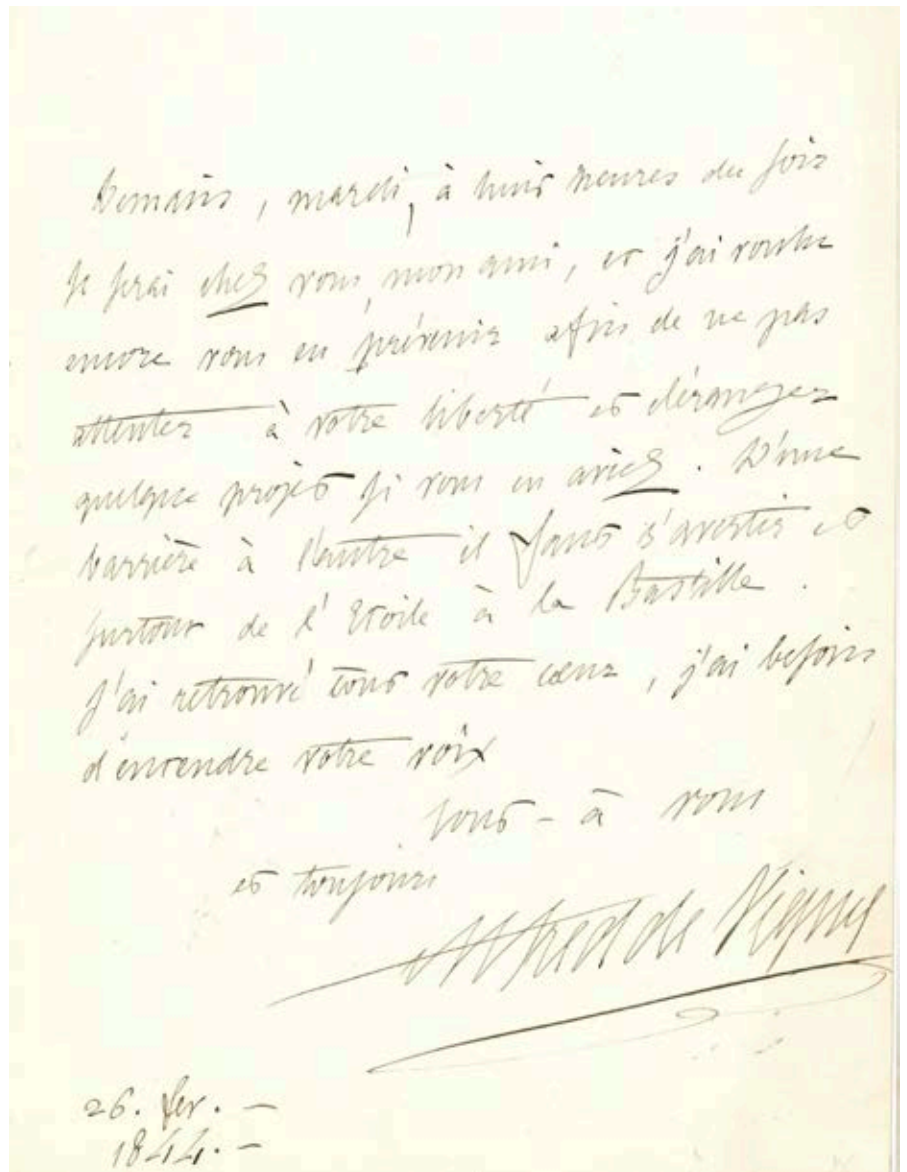 Demain, mardi, à huit heures du soir
je serai chez vous, mon ami, et j'ai voulu
encore vous en prévenir afin de ne pas
attenter à votre liberté et déranger
quelque projet si vous en aviez. D'une
barrière à l'autre il faut s'avertir et
surtout de l'Etoile à la Bastille.
J'ai retrouvé tout votre cœur, j'ai besoin
d'entendre votre voix
tout-à vous
et toujours
Alfred de Vigny
26. fev. -
1844. -